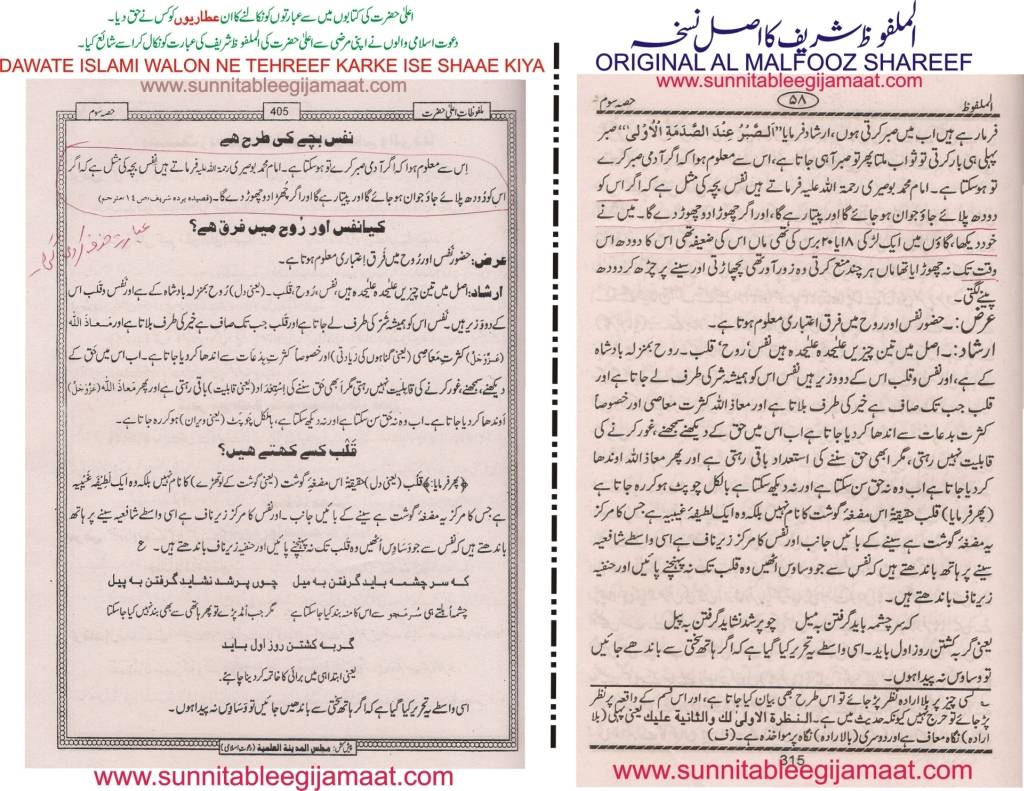 اعلیٰ حضرت کی کتابوں میں سے عبارتوں کو نکالنے کا ان عطاریوں کو کس نے حق دیا۔
دعوت اسلامی والوں نے اپنی مرضی سے اعلیٰ حضرت کی الملفوظ شریف کی عبارت کو نکال کر اسے شائع کیا۔
DAWATE ISLAMI WALON NE TEHREEF KARKE ISE SHAAE KIYA
www.sunnitableegijamaat.com
ملفوظاتِ اعلیٰ حضرت 405 حصہ سوم
نفس بچے کی طرح ہے
اِس سے معلوم ہوا کہ اگر آدمی صبر کرے تو ہوسکتا ہے۔ امام محمد بوصیری رحمۃ اللہ علیہ فرماتے ہیں نفس بچہ کی مثل ہے کہ اگر
اس کو دودھ پلائے جاؤ جوان ہوجائے گا اور پیتا رہے گا اور اگر چھڑا دو چھوڑ دے گا۔ (قصیدہ بردہ شریف، ص ١٤ مترجم)
کیا نفس اور رُوح میں فرق ہے؟
عبارت حذف کردی گئی
عرض: حضور نفس اور رُوح میں فَرق اِعتباری معلوم ہوتا ہے۔
ارشاد: اصل میں تین چیزیں علیحدہ علیحدہ ہیں نفس، رُوح، قلب۔ (یعنی دل) رُوح بمنزلہ بادشاہ کے ہے اور نفس و قلب اس
کے دو وزیر ہیں۔ نفس اس کو ہمیشہ شَر کی طرف لے جاتا ہے اور قلب جب تک صاف ہے خیر کی طرف بلاتا ہے اور مَعاذ اللّٰہ
(عَزَّوَجَلَّ) کثرتِ مَعاصی (یعنی گناہوں کی زیادتی) اور خصوصاً کثرتِ بدعات سے اندھا کردیا جاتا ہے۔ اب اس میں حق کے
دیکھنے، سمجھنے، غور کرنے کی قابلیت نہیں رہتی مگر ابھی حق سننے کی اِستِعداد (یعنی قابلیت) باقی رہتی ہے اور پھر معاذ اللّٰہ (عَزَّوَجَلَّ)
اَوندھا کردیا جاتا ہے۔ اب وہ نہ حق سن سکتا ہے اور نہ دیکھ سکتا ہے، بالکل چوپٹ (یعنی ویران) ہوکر رہ جاتا ہے۔
قَلْب کسے کہتے ہیں؟
(پھر فرمایا:) قلب (یعنی دل) حقیقۃً اس مضغۂ گوشت (یعنی گوشت کے لوتھڑے) کا نام نہیں بلکہ وہ ایک لطیفۂ غَیبِیہ
ہے جس کا مرکز یہ مضغۂ گوشت ہے سینے کے بائیں جانب۔ اور نفس کا مرکز زیرِ ناف ہے اسی واسطے شافعیہ سینے پر ہاتھ
باندھتے ہیں کہ نفس سے جو وَساوِس اُٹھیں وہ قلب تک نہ پہنچنے پائیں اور حنفیہ زیرِ ناف باندھتے ہیں۔ ع
کہ سر چشمہ باید گرفتن بہ میل چوں پرشد نشاید گرفتن بہ پیل
چشمہ اُبلتے ہی سُرمچو سے اس کا منہ بند کیا جاسکتا ہے مگر جب اُمڈ پڑے تو پھر ہاتھی سے بھی بند نہیں کیا جاسکتا
گربہ کشتن روزِ اول باید
یعنی ابتدا ہی میں برائی کا خاتمہ کردینا چاہئے۔
اسی واسطے یہ تحریر کیا گیا ہے کہ اگر ہاتھ سختی سے باندھیں جائیں تو وَساوِس نہ پیدا ہوں۔
پیش کش: مجلس المدینۃ العلمیۃ (دعوتِ اسلامی)
www.sunnitableegijamaat.com
الملفوظ شریف کا اصل نسخہ
ORIGINAL AL MALFOOZ SHAREEF
www.sunnitableegijamaat.com
الملفوظ ۵۸ حصہ سوم
فرما رہے ہیں اب میں صبر کرتی ہوں، ارشاد فرمایا "اَلصَّبْرُ عِنْدَ الصَّدَمَةِ الْاُوْلٰی" صبر
پہلی ہی بار کرتی تو ثواب ملتا پھر تو صبر آ ہی جاتا ہے، اس سے معلوم ہوا کہ اگر آدمی صبر کرے
تو ہوسکتا ہے۔ امام محمد بوصیری رحمۃ اللہ علیہ فرماتے ہیں نفس بچہ کی مثل ہے کہ اگر اس کو
دودھ پلائے جاؤ جوان ہو جائے گا اور پیتا رہے گا، اور اگر چھوڑا دو چھوڑ دے گا۔ میں نے
خود دیکھا، گاؤں میں ایک لڑکی ۱۸ یا ۲۰ برس کی تھی ماں اس کی ضعیفہ تھی اس کا دودھ اس
وقت تک نہ چھوڑایا تھا ماں ہر چند منع کرتی وہ زور آور تھی پچھاڑتی اور سینے پر چڑھ کر دودھ
پینے لگتی۔
عرض:۔ حضور نفس اور روح میں فرق اعتباری معلوم ہوتا ہے۔
ارشاد:۔ اصل میں تین چیزیں علیٰحدہ علیٰحدہ ہیں نفس، روح، قلب۔ روح بمنزلہ بادشاہ
کے ہے، اور نفس و قلب اس کے دو وزیر ہیں نفس اس کو ہمیشہ شر کی طرف لے جاتا ہے اور
قلب جب تک صاف ہے خیر کی طرف بلاتا ہے اور معاذ اللہ کثرت معاصی اور خصوصاً
کثرت بدعات سے اندھا کر دیا جاتا ہے اب اس میں حق کے دیکھنے سمجھنے، غور کرنے کی
قابلیت نہیں رہتی، مگر ابھی حق سننے کی استعداد باقی رہتی ہے اور پھر معاذ اللہ اوندھا
کر دیا جاتا ہے اب وہ نہ حق سن سکتا ہے اور نہ دیکھ سکتا ہے بالکل چوپٹ ہو کر رہ جاتا ہے
(پھر فرمایا) قلب حقیقۃً اس مضغۂ گوشت کا نام نہیں بلکہ وہ ایک لطیفۂ غیبیہ ہے جس کا مرکز
یہ مضغۂ گوشت ہے سینے کے بائیں جانب اور نفس کا مرکز زیر ناف ہے اسی واسطے شافعیہ
سینے پر ہاتھ باندھتے ہیں کہ نفس سے جو وساوس اٹھیں وہ قلب تک نہ پہنچنے پائیں، اور حنفیہ
زیر ناف باندھتے ہیں۔
کہ سر چشمہ باید گرفتن بہ میل چو پر شد نشاید گرفتن بہ پیل
یعنی گربہ کشتن روز اول باید۔ اسی واسطے یہ تحریر کیا گیا ہے کہ اگر ہاتھ سختی سے باندھے جائیں
تو وساوس نہ پیدا ہوں۔
کسی چیز پر بلا ارادہ نظر پڑ جائے تو اس طرح بھی بیان کیا جاتا ہے، اور اس قسم کے واقعہ پر نظر
پڑ جائے تو حرج نہیں کیونکہ حدیث میں ہے۔ النظرة الاولیٰ لك والثانية عليك یعنی پہلی (بلا
ارادہ) نگاہ معاف ہے اور دوسری (بالارادہ) نگاہ پر مواخذہ ہے۔ (ف)
315
www.sunnitableegijamaat.com